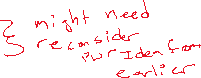 might need
reconsider
our Idea from
earlier